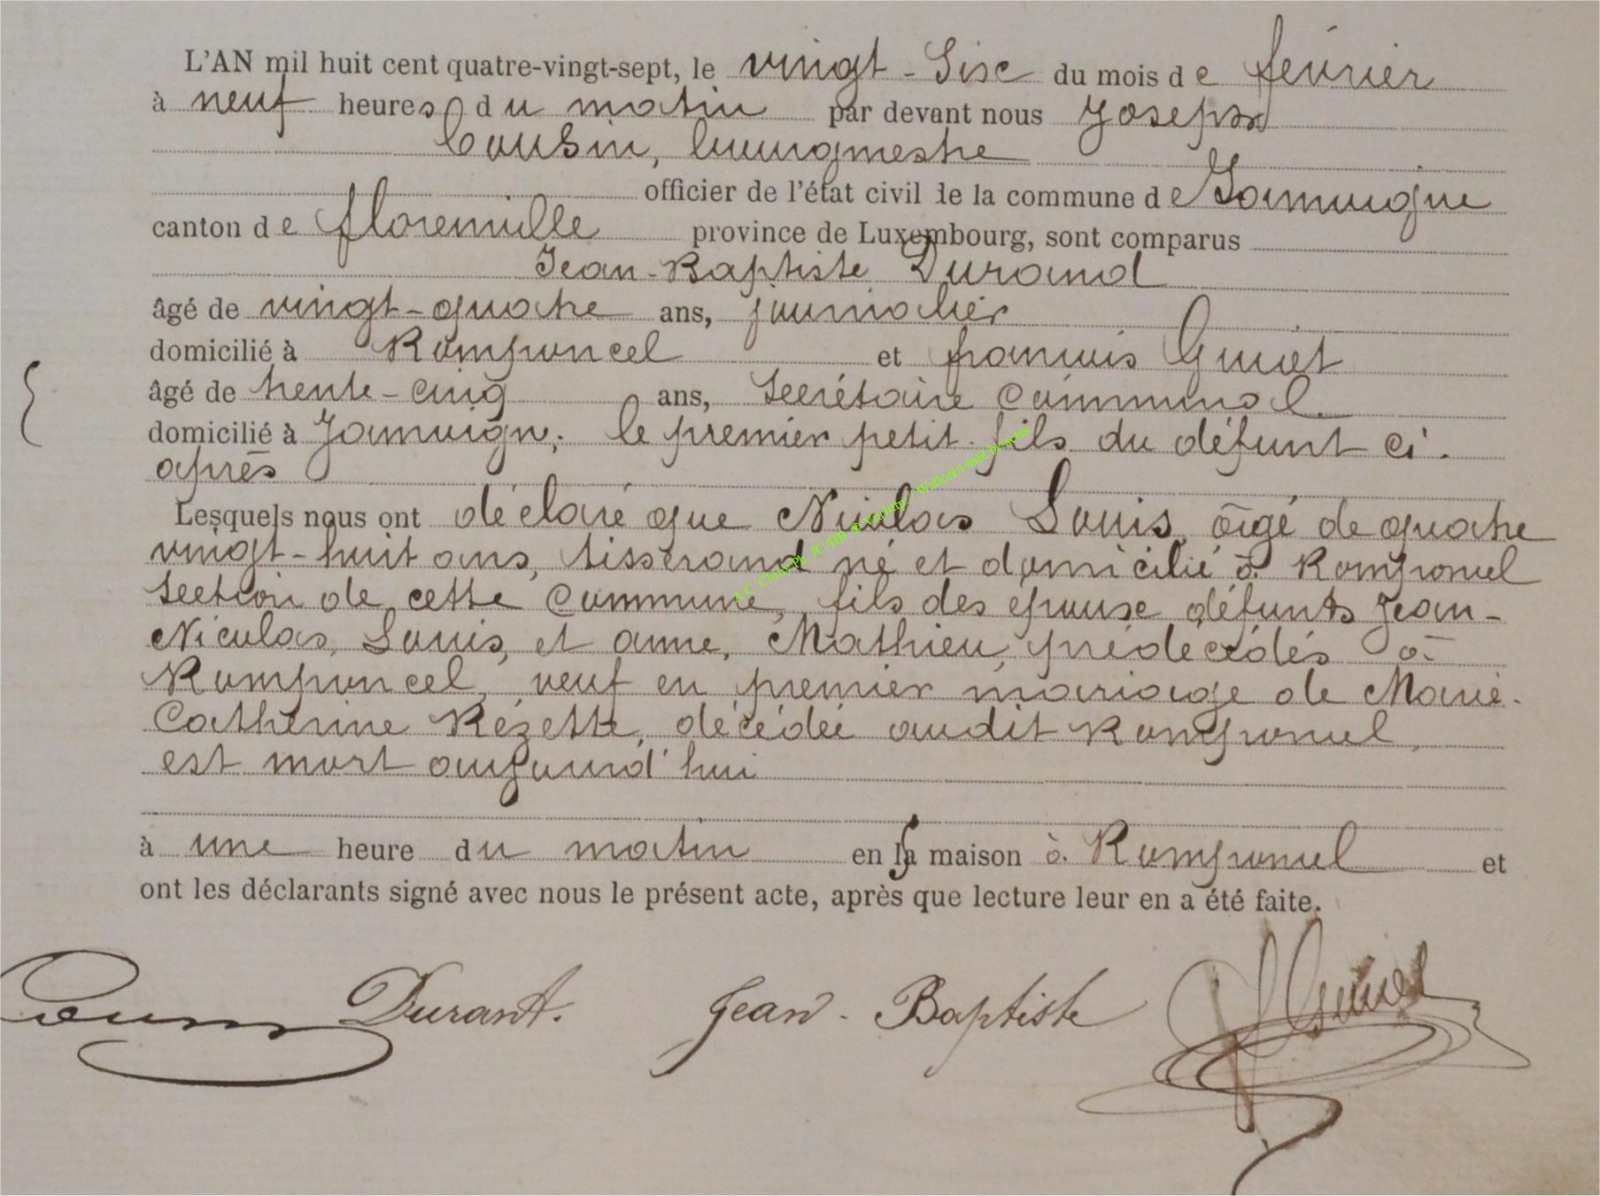 L'AN mil huit cent quatre-vingt-sept, le vingt-six du mois de février
à neuf heures du matin par devant nous Joseph
Cousin, bourgmestre
officier de l'état civil de la commune de Jamoigne
canton de florenville province de Luxembourg, sont comparus
Jean-Baptiste Durand
âgé de vingt-quatre ans, journalier
domicilié à Romponcel et françois
âgé de trente-cinq ans, secrétaire communal
domicilié à Jamoigne; le premier petit-fils du défunt ci-
après
Lesquels nous ont déclaré que Nicolas Louis, âgé de quatre
vingt-huit ans, tisserand né et domicilié à Romponcel
section de cette commune, fils des epoux défunts Jean-
Nicolas Louis, et anne, Mathieu, prédécédés à
Romponcel, veuf en premier mariage de Marie-
Catherine Rézette, décédée audit Romponcel,
est mort aujourd'hui
à une heure du matin en sa maison à Romponcel et
ont les déclarants signé avec nous le présent acte, après que lecture leur en a été faite.
Durant. Jean-Baptiste